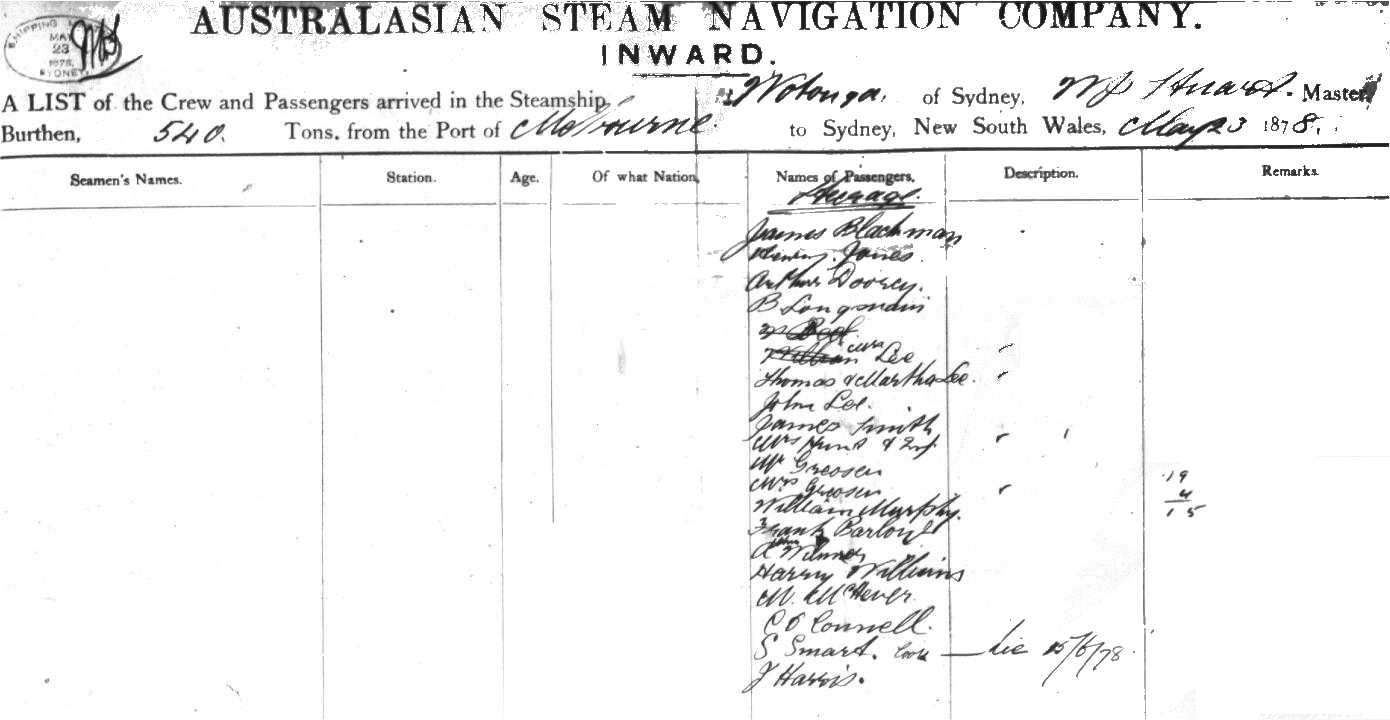 AUSTRALASIAN STEAM NAVIGATION COMPANY.
SHIPPING
MAY
23
1878
SYDNEY
INWARD.
A LIST of the Crew and Passengers arrived in the Steamship Wotonga, of Sydney, Stuart. Master,
Burthen, 540. Tons, from the Port of Melbourne. to Sydney, New South Wales, May 23 1878.
Seamen's Names. Station. Age. Of what Nation. Names of Passengers. Description. Remarks.
Steerage.
James Blackman
Henry Jones
Arthur Doorey.
B Longmain
Mrs Lee
Thomas & Martha Lee.
John Lee.
James Smith
Mrs Hunt & Inf
Mr Greosen
Mrs Greosen
19
4
15
William Murphy.
Frank
Harry Williams
M. McHever
C O Connell.
S Smart. Cook — Lie 15/6/78
J Harris.